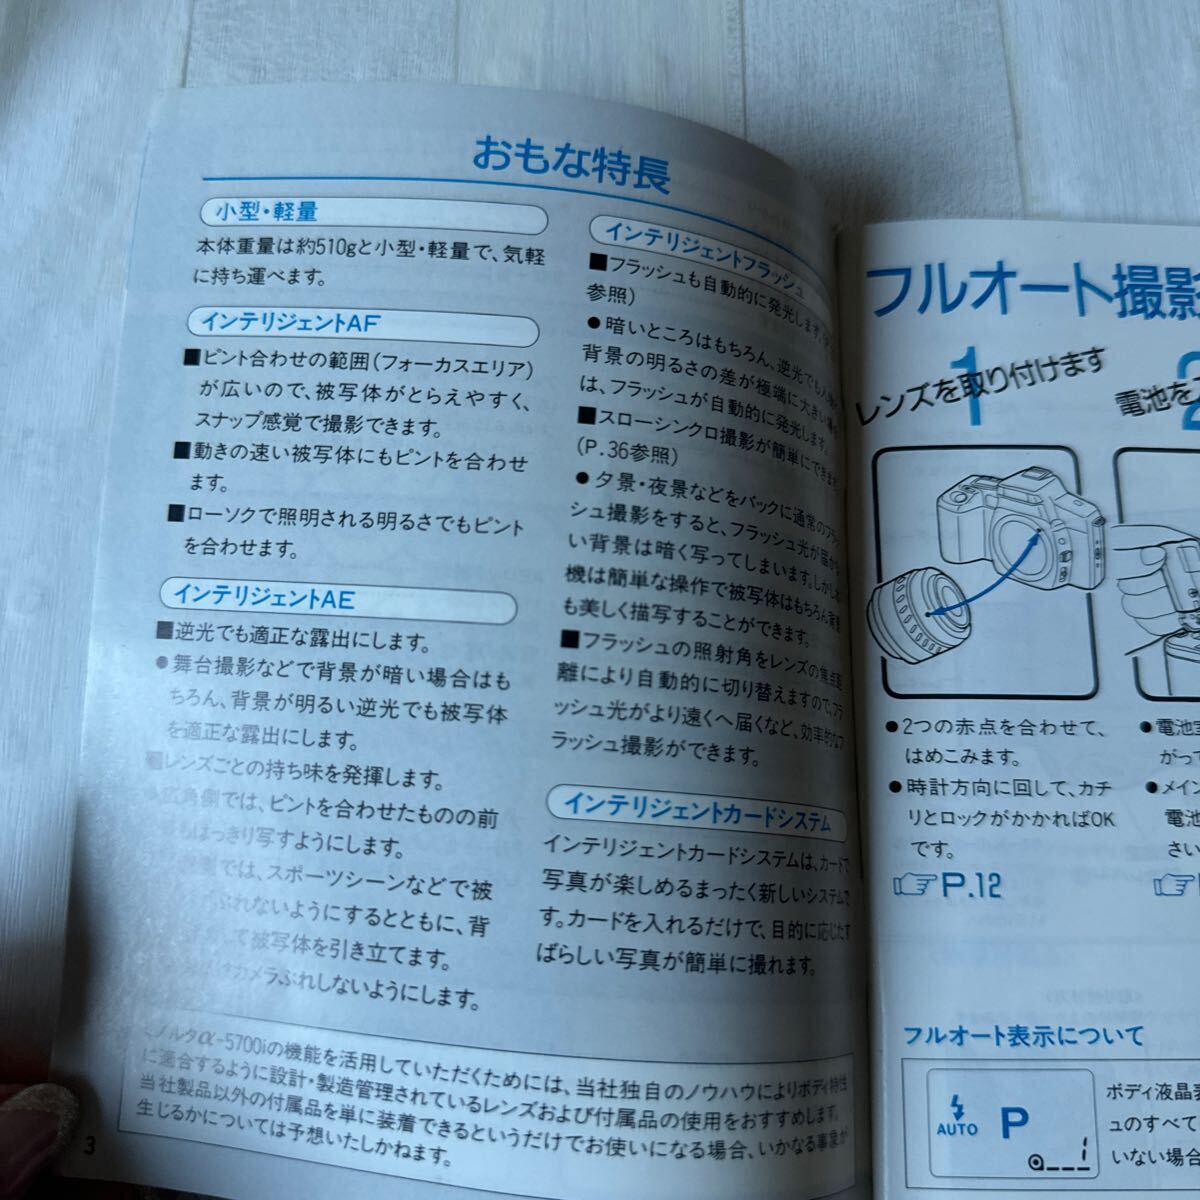 おもな特長
小型・軽量
本体重量は約510gと小型・軽量で、気軽
に持ち運べます。
インテリジェントAF
■ピント合わせの範囲(フォーカスエリア)
が広いので、被写体がとらえやすく、
スナップ感覚で撮影できます。
■動きの速い被写体にもピントを合わせ
ます。
■ローソクで照明される明るさでもピント
を合わせます。
インテリジェントAE
■逆光でも適正な露出にします。
●舞台撮影などで背景が暗い場合はも
ちろん、背景が明るい逆光でも被写体
を適正な露出にします。
■レンズごとの持ち味を発揮します。
広角側では、ピントを合わせたものの前
もはっきり写すようにします。
では、スポーツシーンなどで被
ぶれないようにするとともに、背
て被写体を引き立てます。
カメラぶれしないようにします。
インテリジェントフラッシュ
■フラッシュも自動的に発光します。
参照)
●暗いところはもちろん、逆光でも
背景の明るさの差が極端に大きい
は、フラッシュが自動的に発光します。
■スローシンクロ撮影が簡単にできます。
(P.36参照)
●夕景・夜景などをバックに通常のフラッ
シュ撮影をすると、フラッシュ光が届か
い背景は暗く写ってしまいます。しかし
機は簡単な操作で被写体はもちろん背景
も美しく描写することができます。
■フラッシュの照射角をレンズの焦点距
離により自動的に切り替えますので、フラ
ッシュ光がより遠くへ届くなど、効率的なフ
ラッシュ撮影ができます。
インテリジェントカードシステム
インテリジェントカードシステムは、カードで
写真が楽しめるまったく新しいシステムで
す。カードを入れるだけで、目的に応じたす
ばらしい写真が簡単に撮れます。
ミノルタα-5700iの機能を活用していただくためには、当社独自のノウハウによりボディ特性
に適合するように設計・製造管理されているレンズおよび付属品の使用をおすすめします。
当社製品以外の付属品を単に装着できるというだけでお使いになる場合、いかなる事象が
生じるかについては予想いたしかねます。
3
フルオート撮影
1
レンズを取り付けます
●2つの赤点を合わせて、
はめこみます。
●時計方向に回して、カチ
リとロックがかかればOK
です。
P.12
2
電池を
●電池室
がって
●メイン
電池
さい
フルオート表示について
AUTO P
1
ボディ液晶表
ュのすべて
いない場合